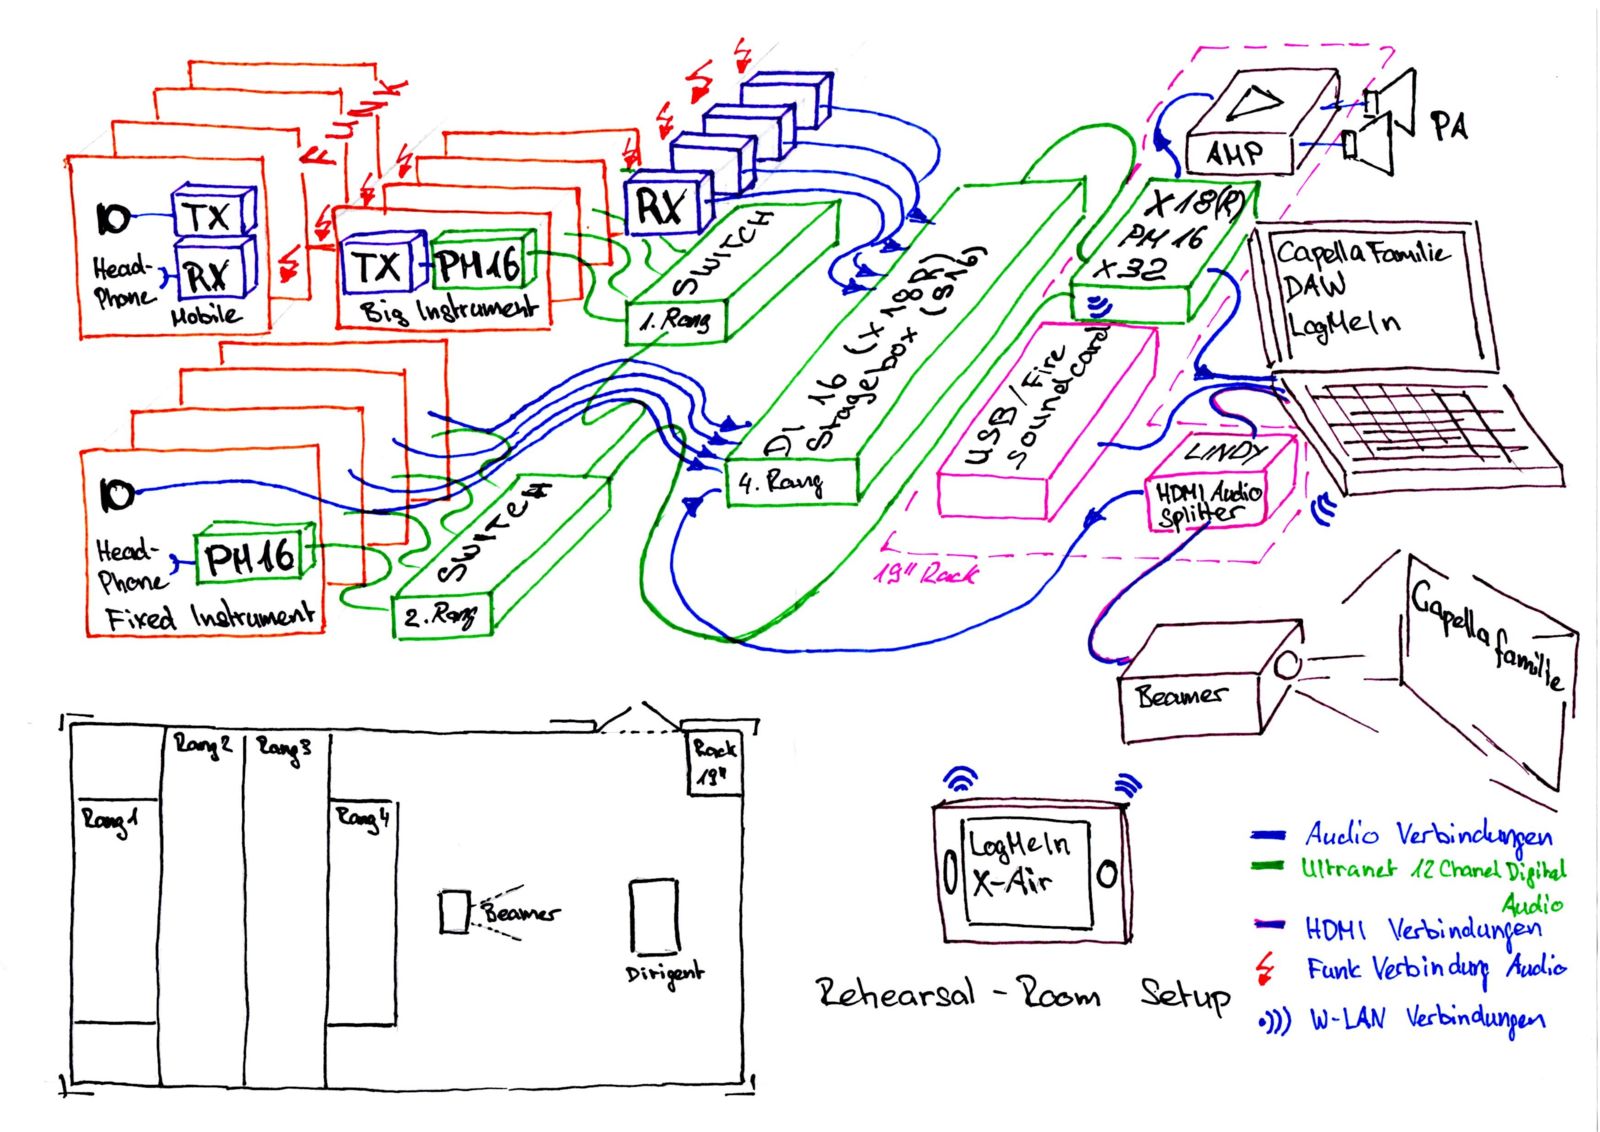 FUNK
TX
Head-
Phone
RX
Mobile
TX
PH16
Big Instrument
RX
SWITCH
1. Rang
DI 16 (X18R)
Stagebox (S16)
4. Rang
AMP
PA
X18(R)
PM 16
X32
Capella Familie
DAW
LogMeIn
USB/Fire
Soundcard
LINDY
HDMI Audio
Splitter
19" Rack
Head-
Phone
PH16
Fixed Instrument
SWITCH
2. Rang
Beamer
Capella
familie
Rang 1
Rang 2
Rang 3
Rang 4
Rack
19"
Beamer
Dirigent
LogMeIn
X-Air
Rehearsal - Room Setup
Audio Verbindungen
Ultranet 12 Chanel Digital
Audio
HDMI Verbindungen
Funk Verbindung Audio
W-LAN Verbindungen